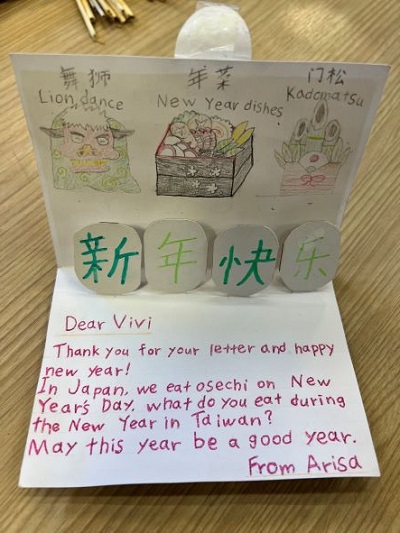 舞狮
年菜
门松
Lion dance
New Year dishes
Kadomatsu
新年快乐
Dear Vivi
Thank you for your letter and happy
new year!
In Japan, we eat osechi on New
Year's Day. what do you eat during
the New Year in Taiwan?
May this year be a good year.
From Arisa